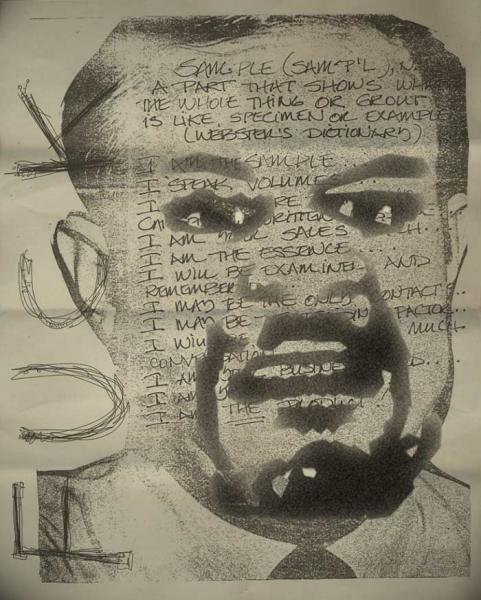 SAMPLE (SAM'P'L), N.
A PART THAT SHOWS WHAT
THE WHOLE THING OR GROUP
IS LIKE, SPECIMEN OR EXAMPLE
(WEBSTER'S DICTIONARY)
I AM THE SAMPLE...
I SPEAK VOLUMES
I RE
WRITTEN
I AM SALES
I AM THE ESSENCE....
I WILL BE EXAMINED AND
REMEMBER
I MAY BE THE ONLY CONTACT..
I MAY BE FACTOR..
I WILL BE MUCH
CONVERSATION
I AM BUSINE
I AM
I AM THE PRODUCT!
FUCK